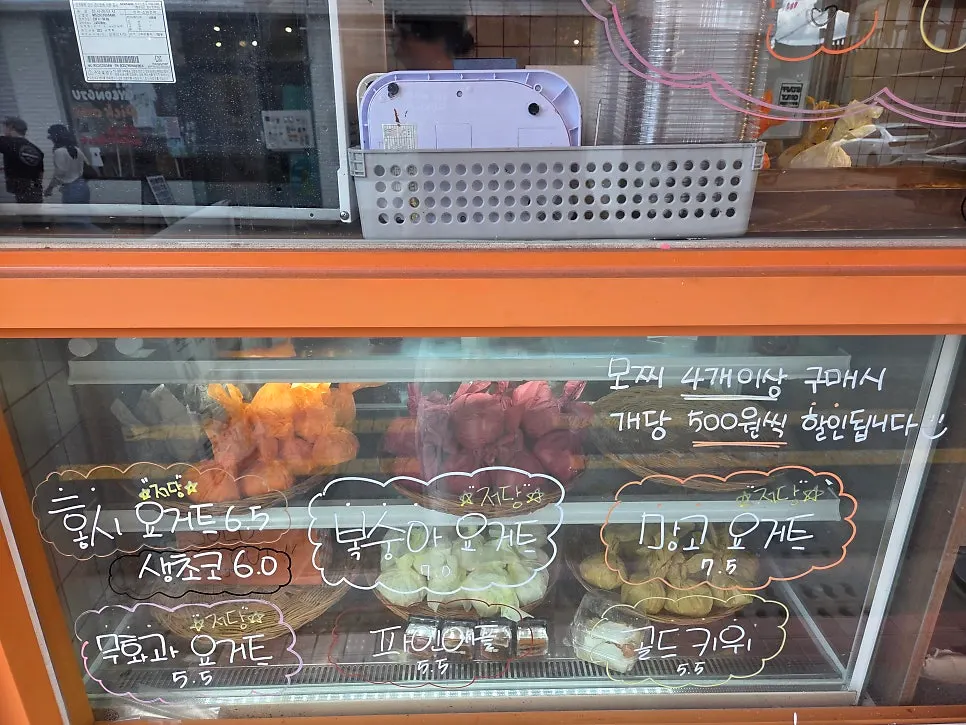 모찌 4개이상 구매시
개당 500원씩 할인됩니다
저당
홍시 요거트 6.5
생초코 6.0
저당
복숭아 요거트
7.0
저당
망고 요거트
7.5
저당
무화과 요거트
5.5
파인애플
5.5
골드키위
5.5